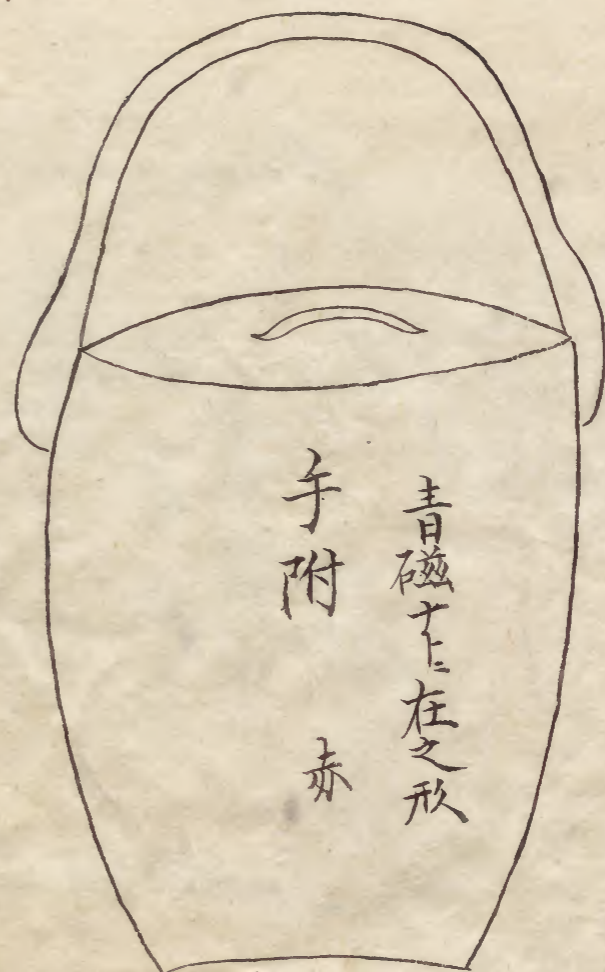 青磁ナトニ在之形
手附 赤